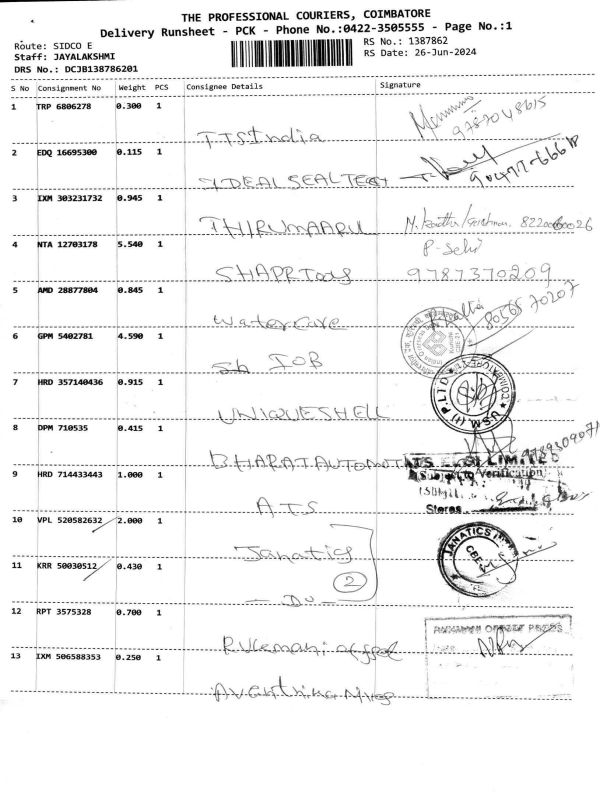 THE PROFESSIONAL COURIERS, COIMBATORE
Delivery Runsheet - PCK - Phone No.:0422-3505555 - Page No.:1
Route: SIDCO E
RS No.: 1387862
Staff: JAYALAKSHMI
RS Date: 26-Jun-2024
DRS No.: DCJB138786201
S No Consignment No Weight PCS Consignee Details Signature
1 TRP 6806278 0.300 1
TTS India 9787048615
2 EDQ 16695300 0.115 1
IDEAL SEAL TECH
3 IXM 303231732 0.945 1
THIRUMAARU
4 NTA 12703178 5.540 1
SHARP Tools 9787370209
5 AMD 28877804 0.845 1
Water Care 80565 70207
6 GPM 5402781 4.590 1
IOB
7 HRD 357140436 0.915 1
UNIQUESHELL
U.S.M. (H) P. LTD COIMBATORE
8 DPM 710535 0.415 1
BHARAT AUTOMOT
9 HRD 714433443 1.000 1
Subject to Verification
ATS
Stores
10 VPL 520582632 2.000 1
Janatics
JANATICS
CBE
11 KRR 50030512 0.430 1
2
- Do -
12 RPT 3575328 0.700 1
Rukmani offset
RUKMANI OFFSET PRESS
13 IXM 506588353 0.250 1